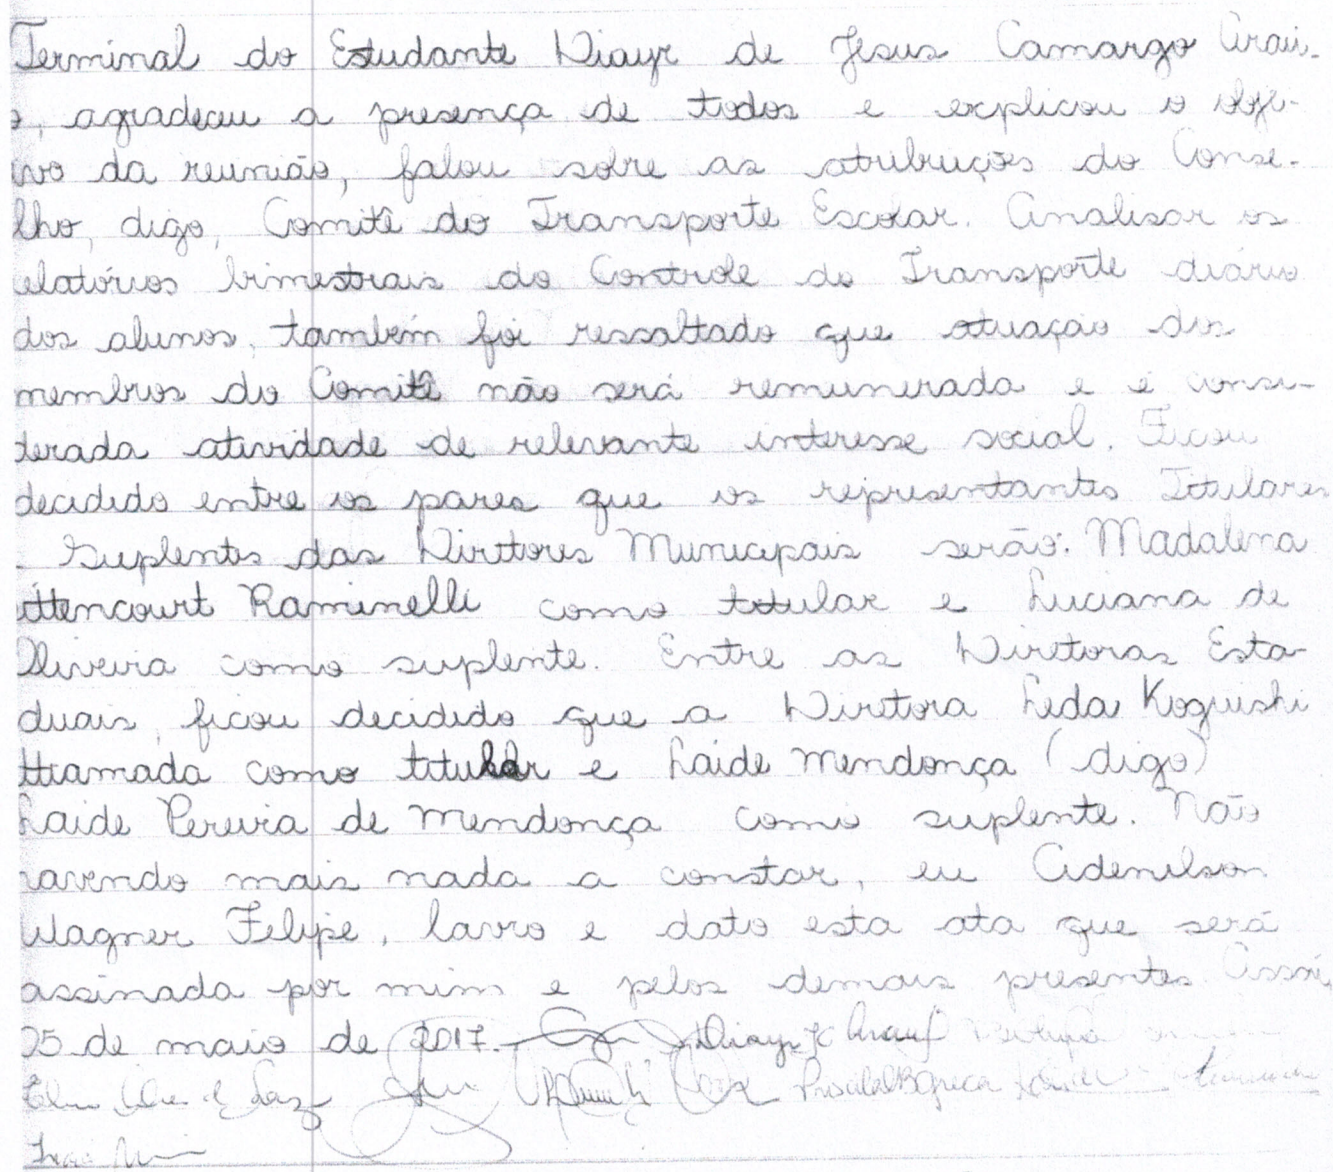 Terminal do Estudante Diayr de Jesus Camargo Arau-
o, agradeceu a presença de todos e explicou o obje-
ivo da reunião, falou sobre as atribuições do Conse-
lho, digo, Comitê do Transporte Escolar. Analisar os
elatórios bimestrais do Controle do Transporte diário
dos alunos, também foi ressaltado que atuação dos
membros do Comitê não será remunerada e é consi-
derada atividade de relevante interesse social. Ficou
decidido entre os pares que os representantes Titulares
Suplentes das Diretores Municipais serão: Madalena
ittencourt Raminelli como titular e Luciana de
Oliveira como suplente. Entre as Diretoras Esta-
duais, ficou decidido que a Diretora Leda Koguishi
ttiamada como titular e Laide Mendonça (digo)
Laide Pereira de Mendonça como suplente. Não
havendo mais nada a constar, eu Adenilson
Wagner Felipe, lavro e dato esta ata que será
assinada por mim e pelos demais presentes. Assaí,
05 de maio de 2017. Diayr